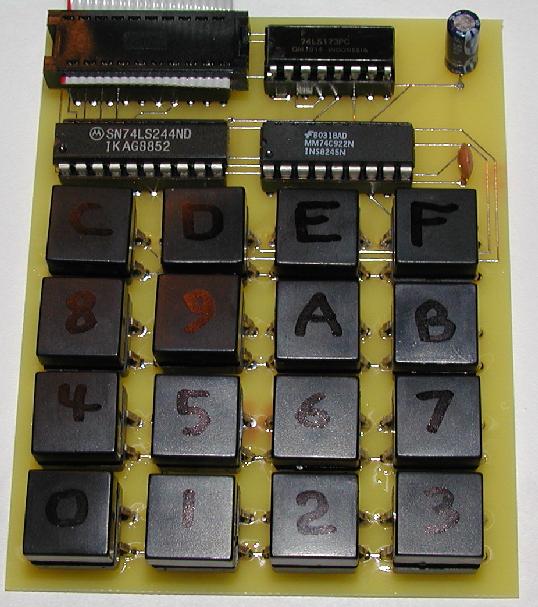 74LS173PC
SN74LS244ND
IKAG8852
8031BAD
MM74C922N
INS8245N
C D E F
8 9 A B
4 5 6 7
0 1 2 3